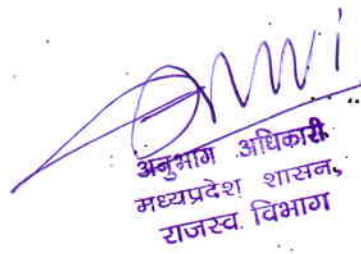 अनुभाग अधिकारी
मध्यप्रदेश शासन,
राजस्व विभाग